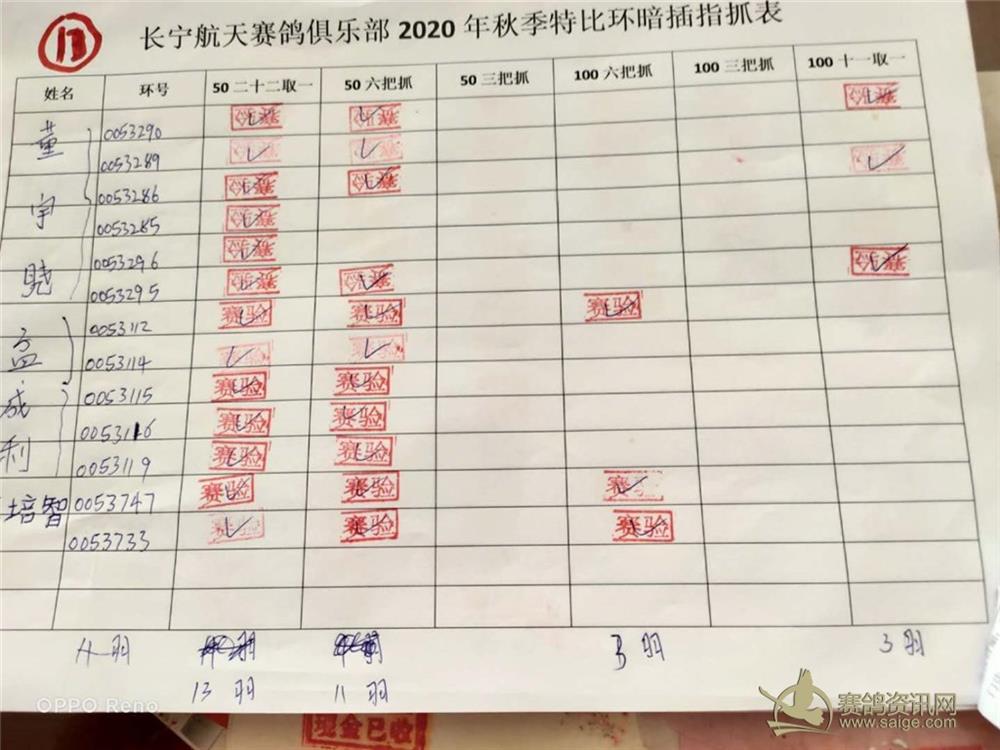 13
长宁航天赛鸽俱乐部 2020 年秋季特比环暗插指抓表
姓名 环号 50 二十二取一 50 六把抓 50 三把抓 100 六把抓 100 三把抓 100 十一取一
董宇晓
0053290
0053289
0053286
0053285
0053296
0053295
孟成利
0053112 赛验 赛验 赛验
0053114
0053115 赛验 赛验
0053116 赛验 赛验
0053119 赛验 赛验
培智 0053747 赛验 赛验
0053733 赛验 赛验 赛验
羽 羽 3 羽 3 羽
13 羽 11 羽
OPPO Reno
现金已收
赛鸽资讯网
www.saige.com